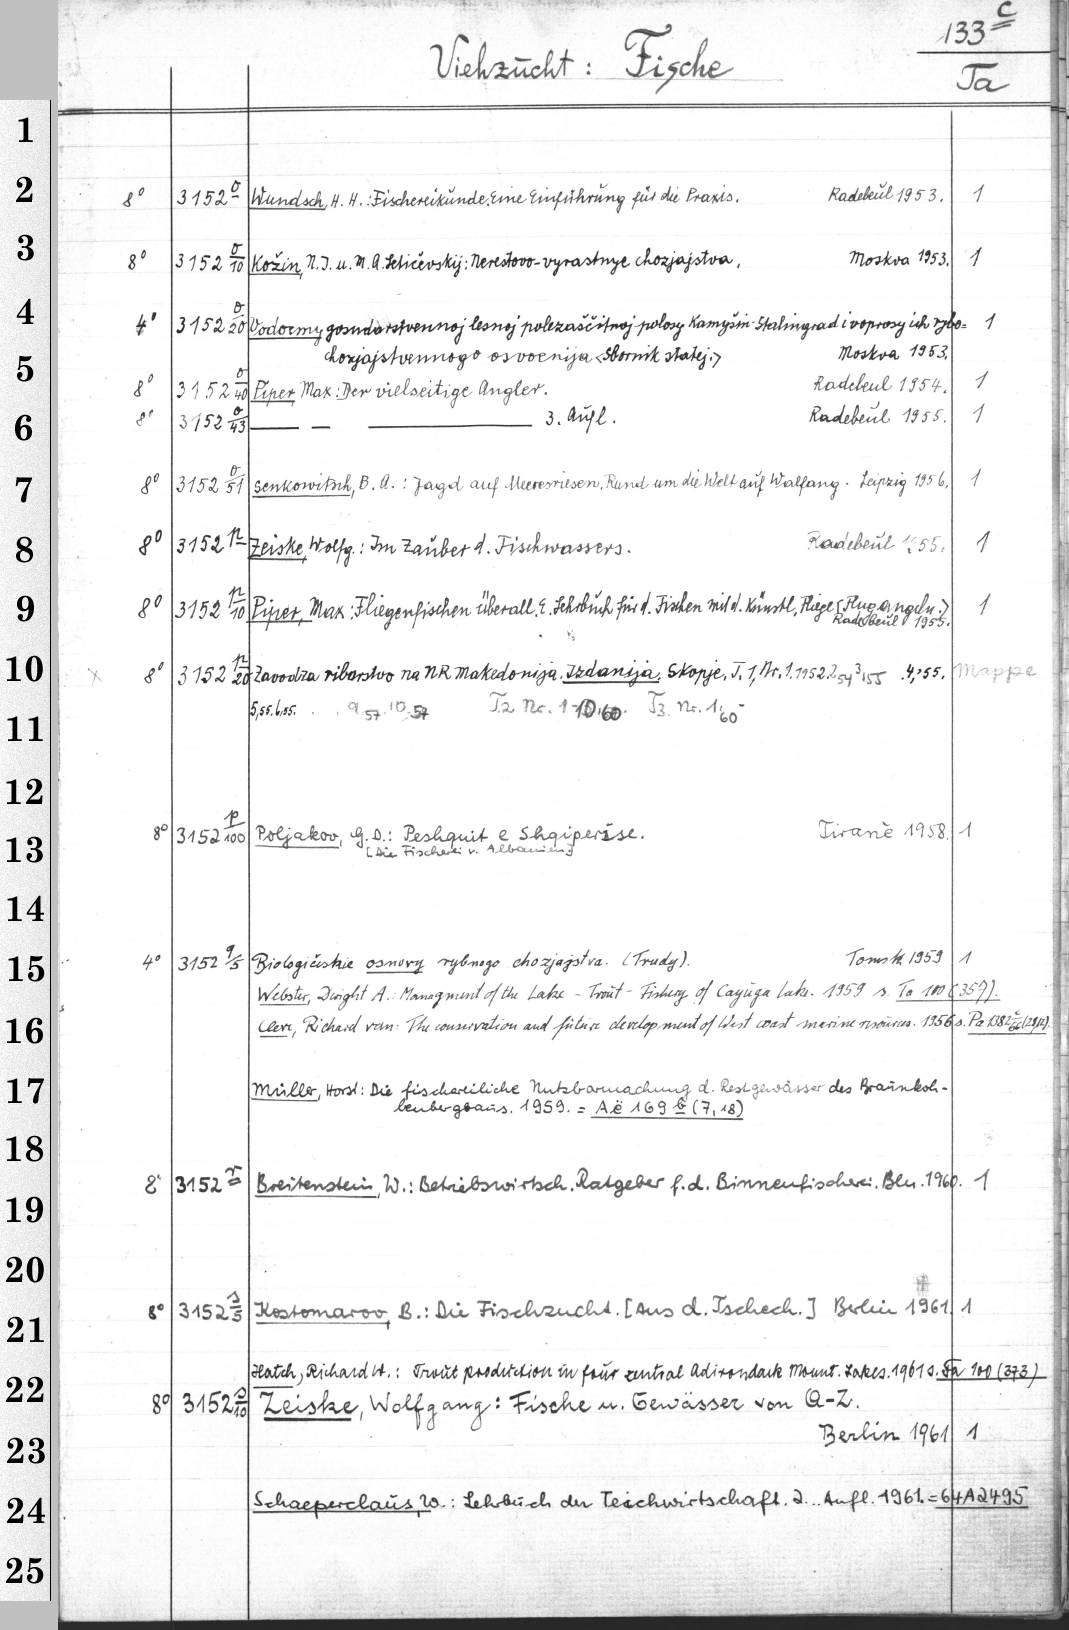 133 c
Viehzucht: Fische
Ta
1
2
8° 3152 o Wundsch, H. H.: Fischereikunde. Eine Einführung für die Praxis. Radebeul 1953. 1
3
8° 3152 o/10 Kožin, N. I. u. M. A. Letičevskij: Nerestovo-vyrastnye chozjajstva. Moskva 1953. 1
4
4° 3152 o/20 Vodoemy gosudarstvennoj lesnoj polezaščitnoj polosy Kamyšin-Stalingrad i voprosy ich rybo= 1
chozjajstvennogo osvoenija <Sbornik statej.> Moskva 1953.
5
8° 3152 o/40 Piper, Max: Der vielseitige Angler. Radebeul 1954. 1
6
8° 3152 o/43 — — — 3. Aufl. Radebeul 1955. 1
7
8° 3152 o/51 Senkowitsch, B. A.: Jagd auf Meeresriesen. Rund um die Welt auf Walfang. Leipzig 1956. 1
8
8° 3152 p Zeiske, Wolfg.: Im Zauber d. Fischwassers. Radebeul 1955. 1
9
8° 3152 p/10 Piper, Max: Fliegenfischen überall. E. Lehrbuch für d. Fischen mit d. Künstl. Fliege (Flugangeln.)
Radebeul 1955. 1
10
8° 3152 p/20 Zavodza ribarstvo na NR Makedonija. Izdanija. Skopje. T. 1, Nr. 1. 1952. 2,54 3,55 4,55. Mappe
5,55. 6,55. 9,57 10,57 T.2 Nr. 1-10,60. T3. Nr. 1,60-
11
12
13
8° 3152 p/100 Poljakov, G. D.: Peshquit e Shqiperise. Tiranë 1958. 1
[Die Fischerei v. Albanien]
14
15
4° 3152 q/5 Biologičeskie osnovy rybnogo chozjajstva. (Trudy). Tomsk 1959 1
Webster, Dwight A.: Managment of the Lake-Trout-Fishery of Cayuga Lake. 1959 s. Ta 100 (357).
16
Cleve, Richard van: The conservation and future development of West coast marine resources. 1956 s. Pa 1382
17
Müller, Horst: Die fischereiliche Nutzbarmachung d. Restgewässer des Braunkoh-
lenbergbaus. 1959. = Aë 169 b (7,18)
18
19
8° 3152 r Breitenstein, W.: Betriebswirtsch. Ratgeber f. d. Binnenfischerei. Bln. 1960. 1
20
21
8° 3152 s/5 Kostomarov, B.: Die Fischzucht. [Aus d. Tschech.] Berlin 1961. 1
22
Hatch, Richard W.: Trout production in four central Adirondack Mount. Lakes. 1961 s. Ta 100 (373)
8° 3152 s/10 Zeiske, Wolfgang: Fische u. Gewässer von A-Z.
23
Berlin 1961 1
24
Schaeperclaus, W.: Lehrbuch der Teichwirtschaft. 2. Aufl. 1961. = 64A2495
25